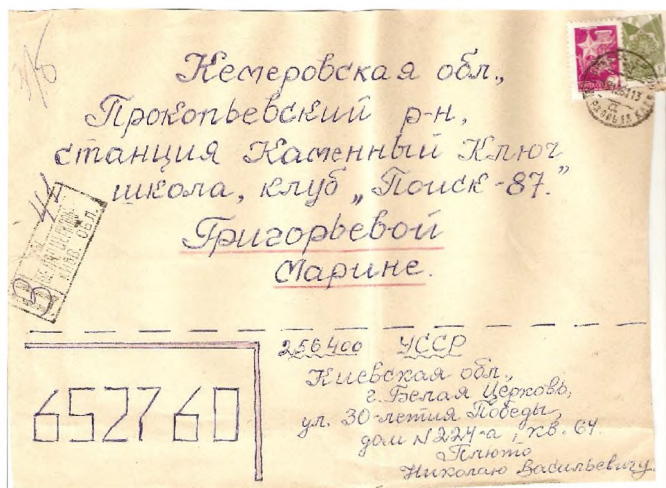 Кемеровская обл.,
Прокопьевский р-н,
станция Каменный Ключ
школа, клуб „Поиск-87."
Григорьевой
Марине.
652760
256400 УССР
Киевская обл.,
г. Белая Церковь,
ул. 30-летия Победы,
дом №224-а, кв. 64.
Плюто
Николаю Васильевичу.